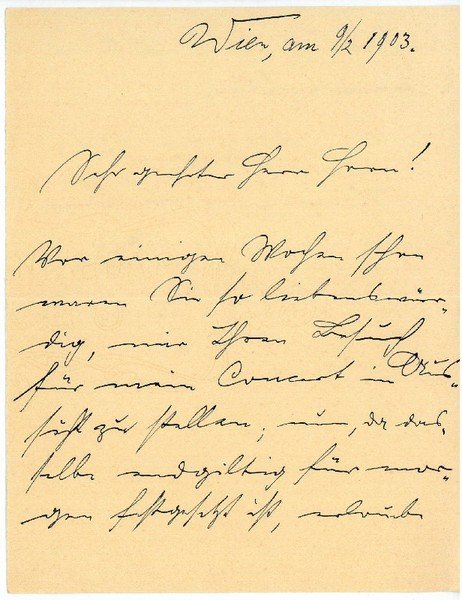 Wien, am 9/2 1903.
Sehr geehrter Herr Horn!
Vor einigen Wochen schon
waren Sie so liebenswür-
dig, mir Ihren Besuch
für mein Concert in Aus-
sicht zu stellen; nun, da das-
selbe endgiltig für mor-
gen festgesetzt ist, erlaube